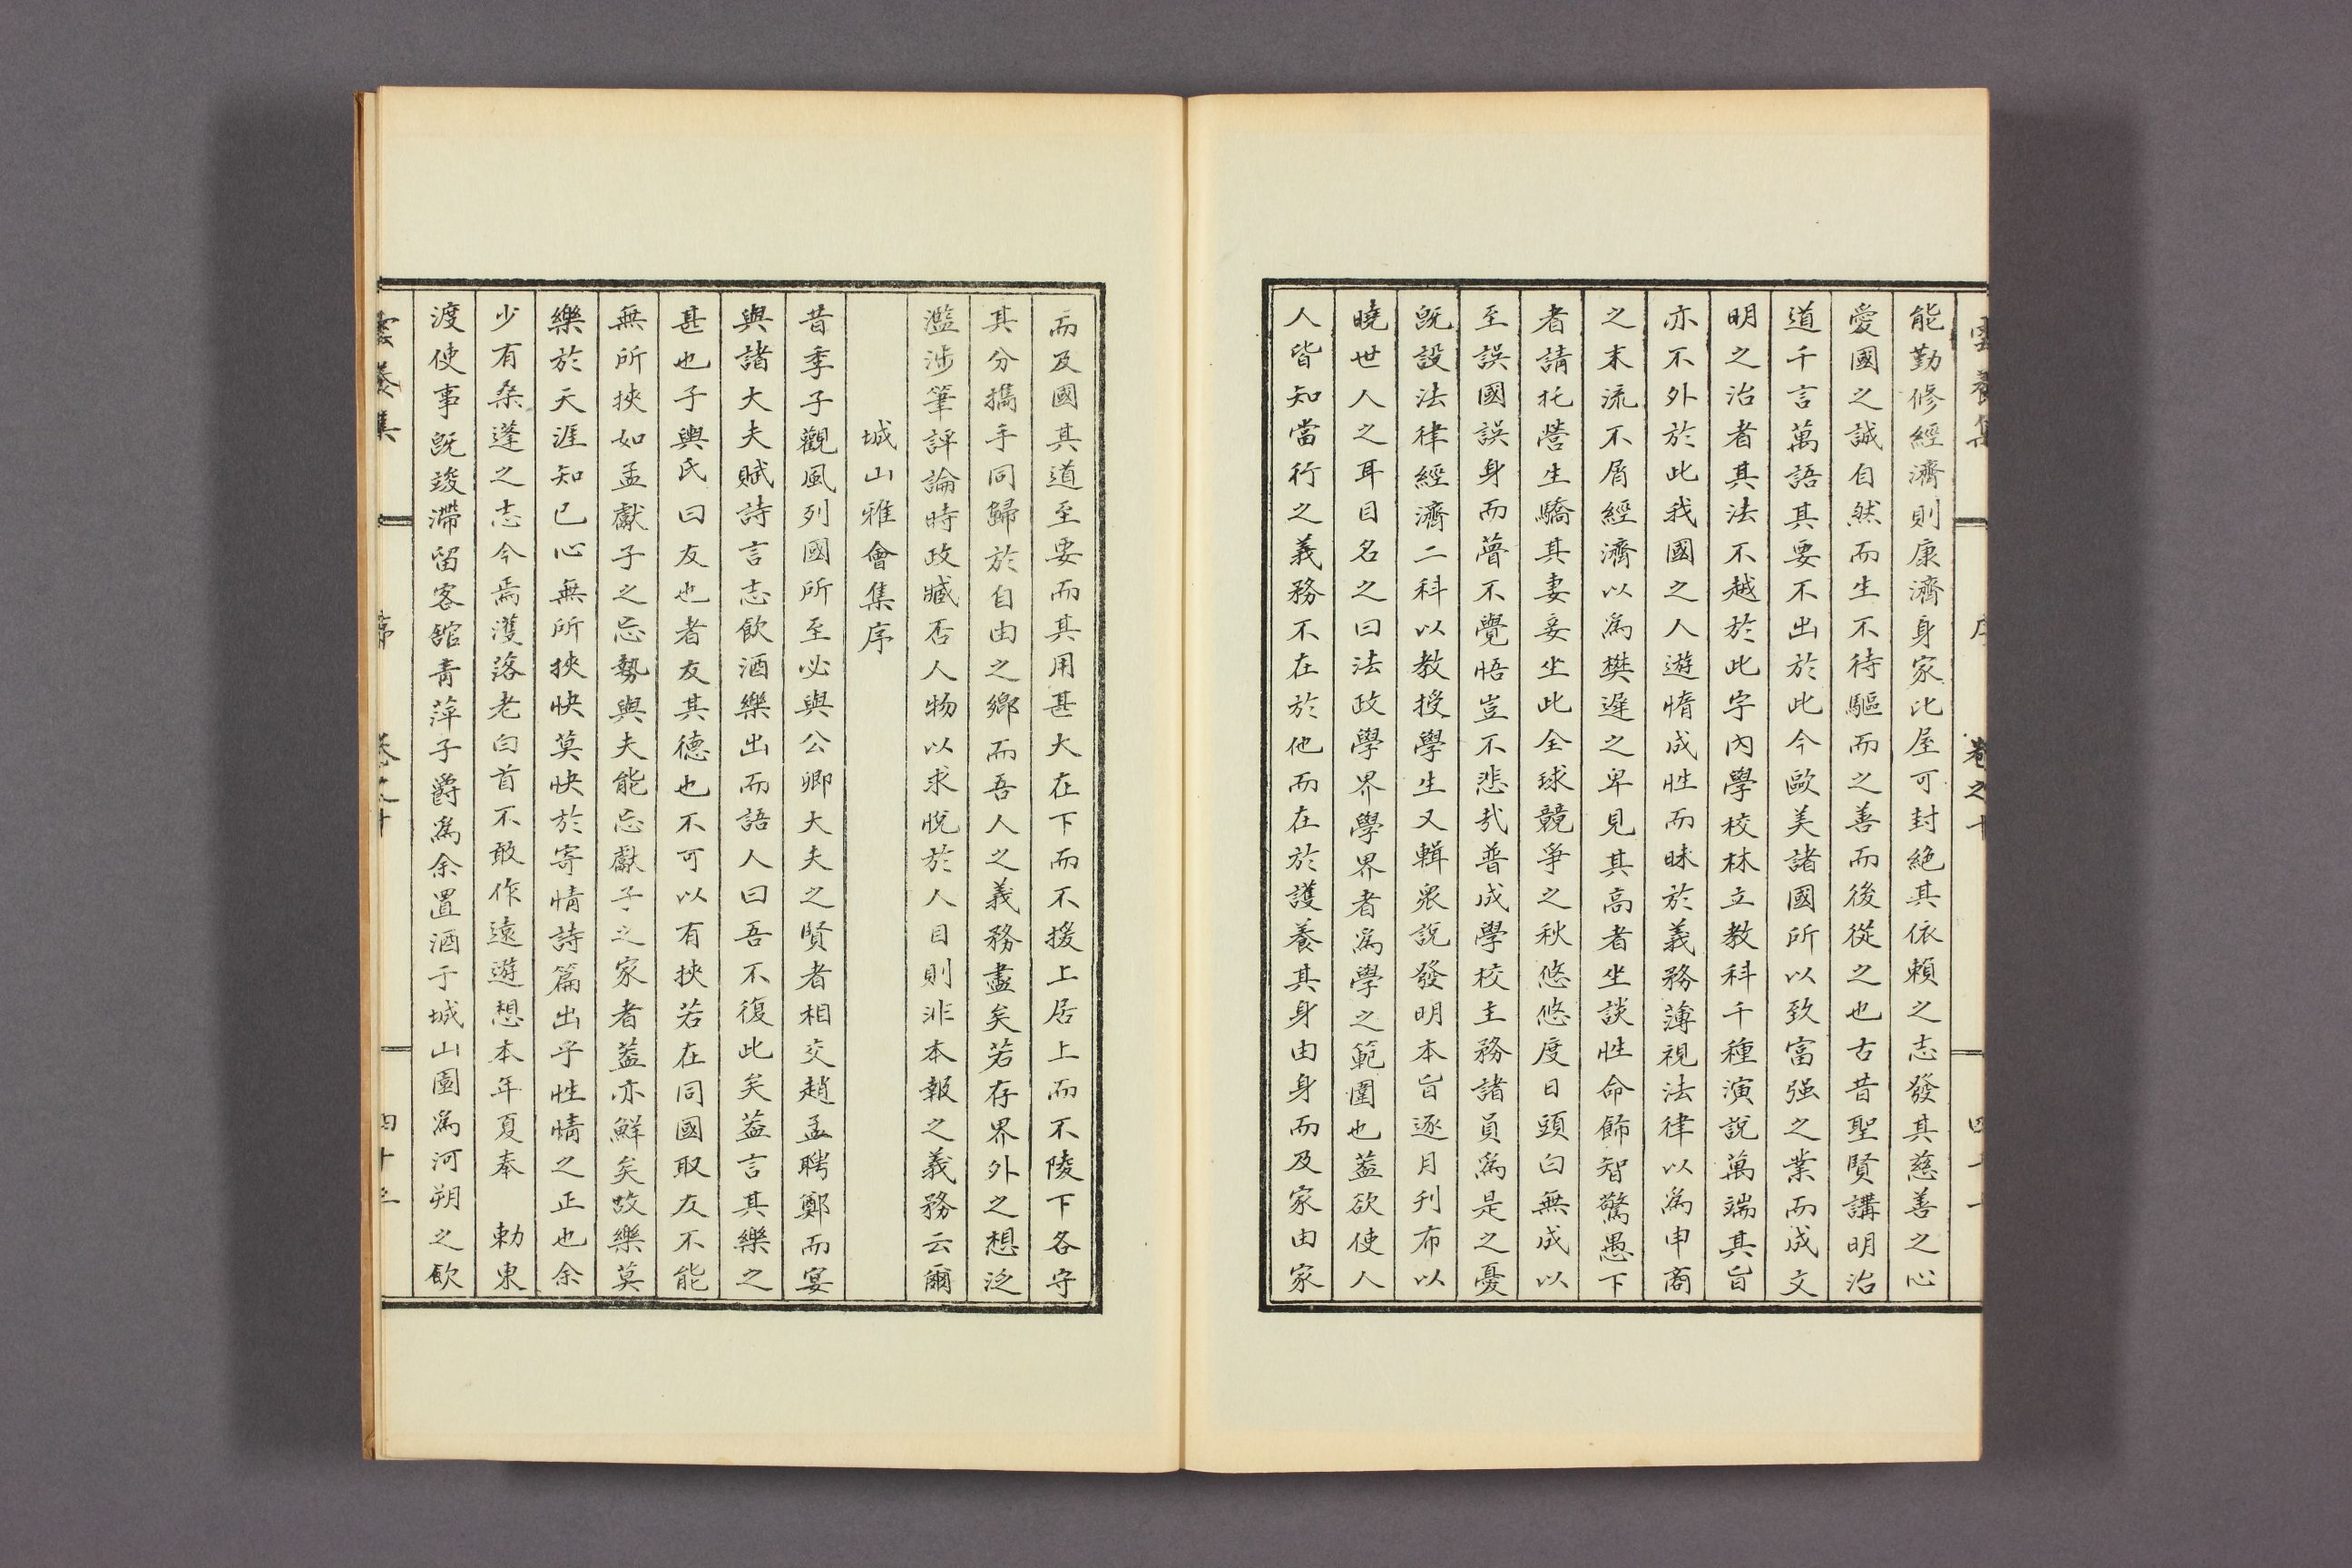 雲養集 序 卷之十 四十一
能勤修經濟則康濟身家比屋可封絶其依賴之志發其慈善之心
愛國之誠自然而生不待驅而之善而後從之也古昔聖賢講明治
道千言萬語其要不出於此今歐美諸國所以致富强之業而成文
明之治者其法不越於此字內學校林立教科千種演說萬端其旨
亦不外於此我國之人遊惰成性而昧於義務薄視法律以爲申商
之末流不屑經濟以爲樊遲之卑見其高者坐談性命飾智驚愚下
者請托營生驕其妻妾坐此全球競爭之秋悠悠度日頭白無成以
至誤國誤身而瞢不覺悟豈不悲㢤普成學校主務諸員爲是之憂
旣設法律經濟二科以教授學生又輯衆說發明本旨逐月刋布以
曉世人之耳目名之曰法政學界學界者爲學之範圍也葢欲使人
人皆知當行之義務不在於他而在於護養其身由身而及家由家
而及國其道至要而其用甚大在下而不援上居上而不陵下各守
其分攜手同歸於自由之鄕而吾人之義務盡矣若存界外之想泛
濫涉筆評論時政臧否人物以求悅於人目則非本報之義務云爾
城山雅會集序
昔季子觀風列國所至必與公卿大夫之賢者相交趙孟聘鄭而宴
與諸大夫賦詩言志飮酒樂出而語人曰吾不復此矣葢言其樂之
甚也子輿氏曰友也者友其德也不可以有挾若在同國取友不能
無所挾如孟獻子之忘勢與夫能忘獻子之家者葢亦鮮矣故樂莫
樂於天涯知己心無所挾快莫快於寄情詩篇出乎性情之正也余
少有桑蓬之志今焉濩落老白首不敢作遠遊想本年夏奉 勅東
渡使事旣竣滯留客舘靑萍子爵爲余置酒于城山園爲河朔之飮
雲養集 序 卷之十 四十二